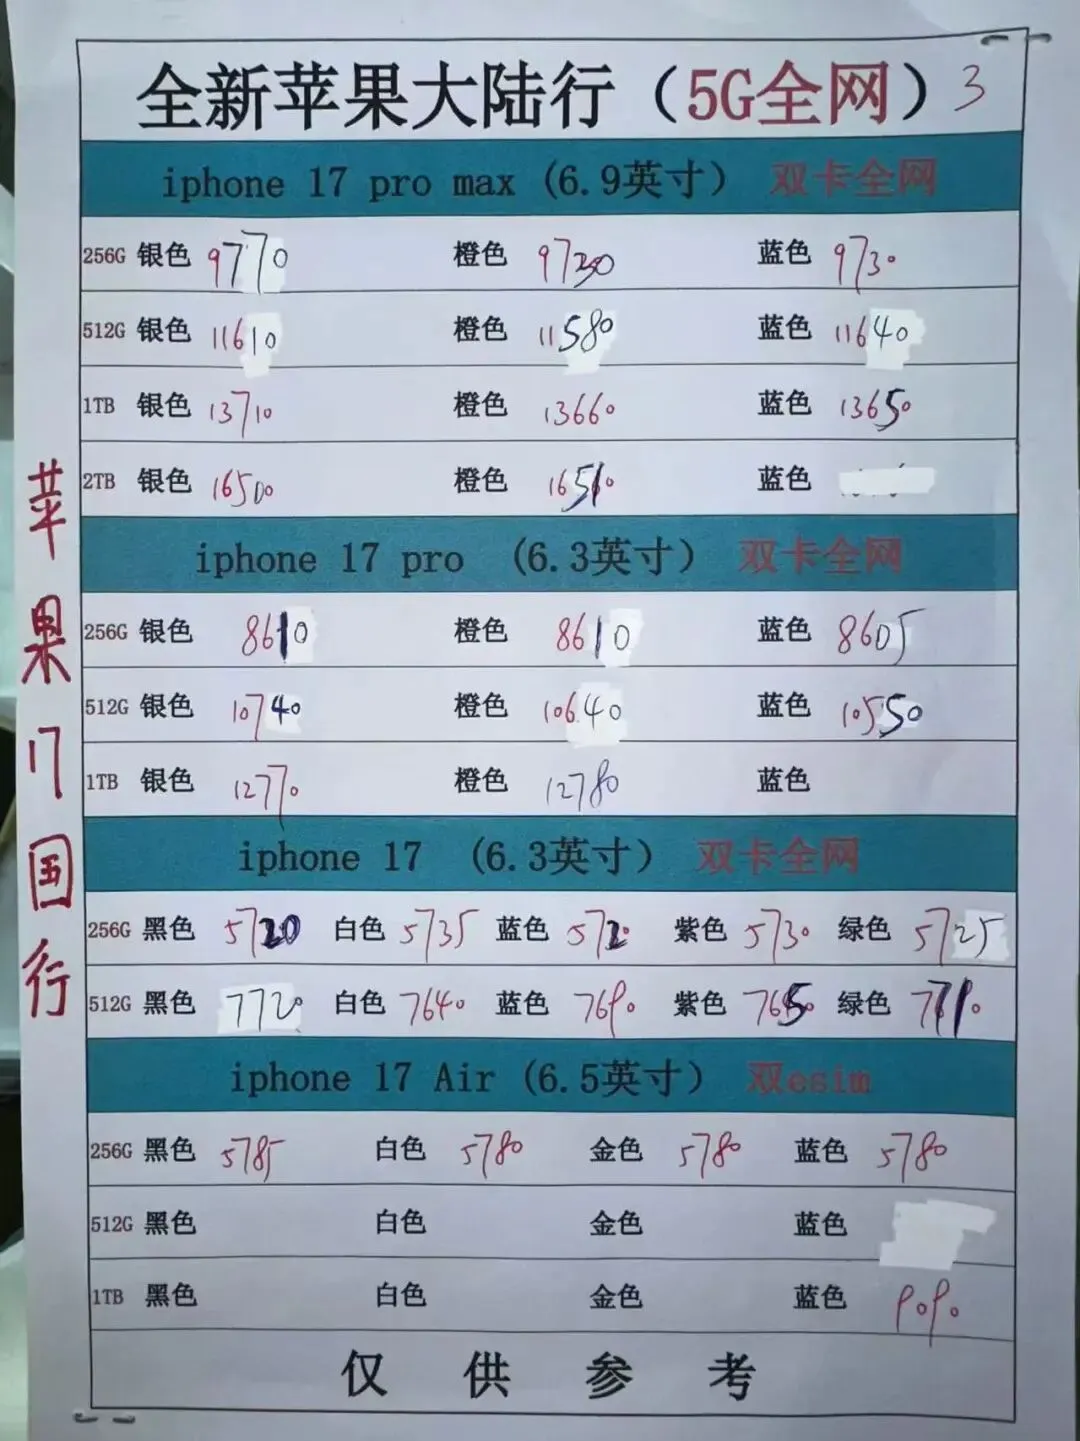 全新苹果大陆行（5G全网）3
iphone 17 pro max (6.9英寸） 双卡全网
256G 银色 9770 橙色 9730 蓝色 9730
512G 银色 11610 橙色 11580 蓝色 11640
1TB 银色 13710 橙色 13660 蓝色 13650
2TB 银色 16500 橙色 16510 蓝色
iphone 17 pro （6.3英寸） 双卡全网
256G 银色 8610 橙色 8610 蓝色 8605
512G 银色 10740 橙色 10640 蓝色 10550
1TB 银色 12770 橙色 12780 蓝色
iphone 17 （6.3英寸） 双卡全网
256G 黑色 5720 白色 5735 蓝色 5720 紫色 5730 绿色 5725
512G 黑色 7720 白色 7640 蓝色 7690 紫色 7650 绿色
iphone 17 Air (6.5英寸） 双esim
256G 黑色 5785 白色 5780 金色 5780 蓝色 5780
512G 黑色 白色 金色 蓝色
1TB 黑色 白色 金色 蓝色 9090
仅供参考
苹果17国行